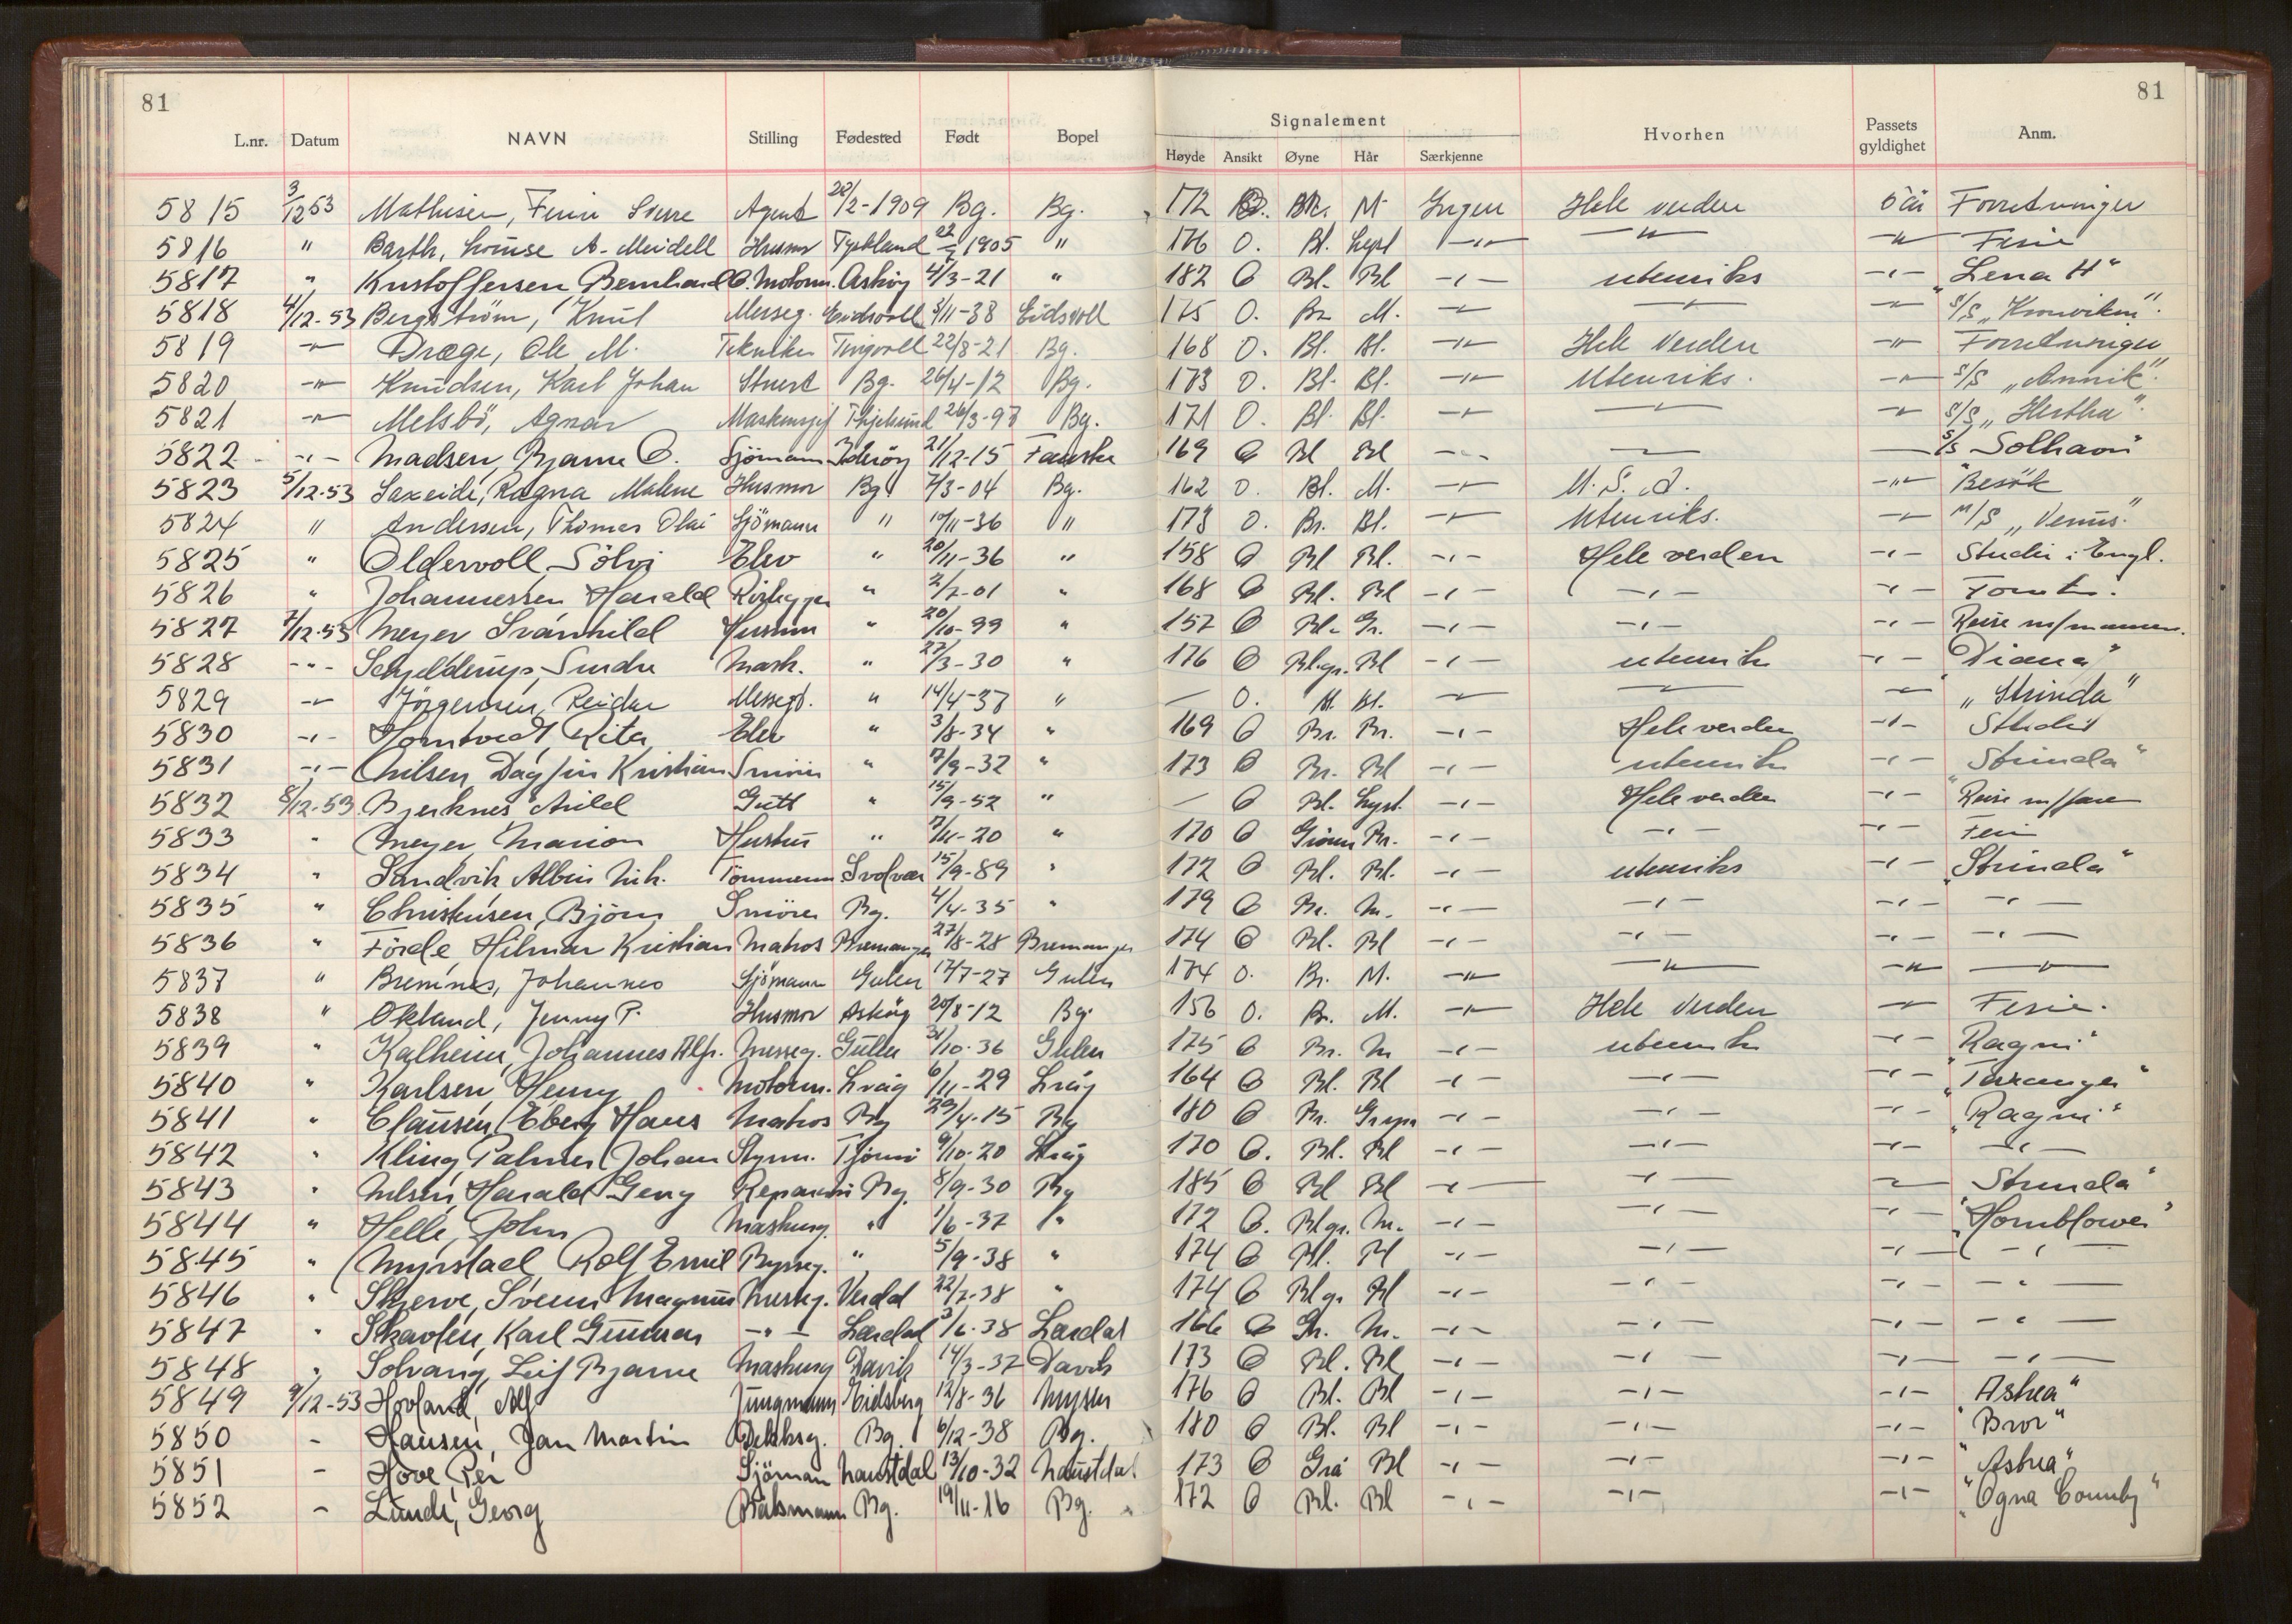 81 81
Signalement
L.nr. Datum NAVN Stilling Fødested Født Bopel Høyde Ansikt Øyne Hår Særkjenne Hvorhen Passets gyldighet Anm.
5815 3/12 53 Mathisen, Finn Sverre Agent 28/2-1909 Bg. Bg. 172 Br. M Ingen Hele verden 5 år Forretninger
5816 " Barth, Louise A. Meidell Husmor Tyskland 1905 " 176 O. Bl. Lyst -"- -"- -"- Ferie
5817 " Kristoffersen Bernhard O. Motorm. Askøy 4/3-21 " 182 O Bl. Bl -"- utenriks -"- "Lena H"
5818 4/12-53 Bergström, Knut Messeg. Eidsvoll 3/11-38 Eidsvoll 175 O. Br. M. -"- -"- -"- S/S „Kronviken".
5819 -"- Dræge, Ole M. Tekniker Tingvoll 22/8-21 Bg. 168 O. Bl. Bl. -"- Hele Verden -"- Forretninger
5820 -"- Knudsen, Karl Johan Stuert Bg. 26/4-12 Bg. 173 O. Bl. Bl. -"- Utenriks. -"- S/S „Annik".
5821 -"- Melsbö, Agnar Maskinsjef 26/3-97 Bg. 171 O. Bl. Bl. -"- -"- -"- S/S „Hertha".
5822 -"- Madsen, Bjarne O. Sjömann Inderöy 21/12-15 Fauske 169 O Bl Bl -"- — — S/S Solhavn"
5823 5/12-53 Saxeide, Ragna Malene Husmor Bg. 7/3-04 Bg. 162 O. Bl. M. -"- U.S.A. -"- Besök
5824 " Andersen, Thomas Olai Sjömann " 10/11-36 " 173 O. Br. Bl. -"- Utenriks. -"- M/S „Venus".
5825 " Oldervoll Sölvi Elev " 20/11-36 " 158 O Bl Bl. -"- Hele verden -"- Studier i Engl.
5826 " Johannessen Harald " 2/7-01 " 168 O Bl. Bl -"- -"- -"- Forretn.
5827 7/12-53 Meyer Svanhild Husmor " 20/10-99 " 157 O Bl. Gr. -"- -"- -"- Reise m/mannen.
5828 -"- Schjelderup, Sindre Mask. " 27/3-30 " 176 O Bl.gr. Bl -"- utenriks -"- "Diana"
5829 -"- Jörgensen, Reidar Messegt. " 14/4-37 " — O. Bl. Bl. -"- -"- -"- „Strinda"
5830 -"- Horntvedt, Rita Elev " 3/8-34 " 169 O Br. Br. -"- Hele verden -"- Studier
5831 -"- Nilsen, Dagfin Kristian Smörer " 7/9-32 " 173 O Br. Bl -"- utenriks -"- Strinda"
5832 8/12-53 Bjerknes Arild Gutt " 15/9-52 " — O Bl. Lyst. -"- Hele verden -"- Reise m/faren
5833 " Meyer Marion Hustru " 7/11-20 " 170 O Grönn Br. -"- -"- -"- Ferie
5834 " Sandvik Albin Nik. Tömmerm Svolvær 15/9-89 " 172 O Bl. Bl. -"- utenriks -"- "Strinda"
5835 " Christensen, Björn Smörer Bg. 4/4-35 " 179 O Br. M. -"- -"- -"- -"-
5836 " Förde, Hilmar Kristian Matros Bremanger 27/8-28 Bremanger 174 O Bl. Bl -"- -"- -"- -"-
5837 " Bremnes, Johannes Sjömann Gulen 17/7-27 Gulen 174 O. Br. M. -"- -"- -"- -"-
5838 " Økland, Jenny P. Husmor Asköy 20/8-12 Bg. 156 O. Br. M. -"- Hele Verden -"- Ferie.
5839 " Kalheim, Johannes Alfr. Messeg. Gulen 31/10-36 Gulen 175 O Br. M -"- utenriks -"- Ragni"
5840 " Karlsen, Henry Motorm. Kvåg 6/11-29 Kvåg 164 O Bl. Bl -"- -"- -"- "Taranger"
5841 " Clausen, Eberg Hans Matros Bg 29/4-15 Bg 180 O Br. -"- -"- -"- "Ragni"
5842 " Kling Palmer Johan Styrm. Tjömö 9/10-20 170 O. Bl. Bl -"- -"- -"- -"-
5843 " Nilsen, Harald Georg Reparatör Bg. 8/9-30 Bg 185 O Bl Bl -"- -"- -"- Strinda"
5844 " Helle, John Masking. " 1/6-37 " 172 O. Blgr. M. -"- -"- -"- "Hornblower"
5845 " Myrstad Rolf Emil Bysseg. " 5/9-38 " 174 O Bl. Bl -"- -"- -"- -"-
5846 " Skjerve, Svenn Magnus Messeg. Verdal 22/7-38 " 174 O Blgr Bl -"- -"- -"- -"-
5847 " Skavlen, Karl Gunnar -"- Lærdal 3/6-38 Lærdal 166 O Gr. M. -"- -"- -"- -"-
5848 " Solvang, Leif Bjarne Masking Davik 14/3-37 Davik 173 O Bl. Bl -"- -"- -"- -"-
5849 9/12-53 Hovland, Alf Jungmann Eidsberg 12/8-36 Mysen 176 O Bl. Bl -"- -"- -"- "Astrea"
5850 - Hansen, Jan Martin Dekksg. Bg. 6/12-38 Bg. 180 O Bl. Bl -"- -"- -"- "Bror"
5851 - Hove Per Sjöman Naustdal 13/10-32 Naustdal 173 O Grå Bl -"- -"- -"- "Astrea"
5852 - Lunde, Georg Båtsmann Bg. 19/11-16 Bg. 172 O Bl. Bl -"- -"- -"- "Ogna